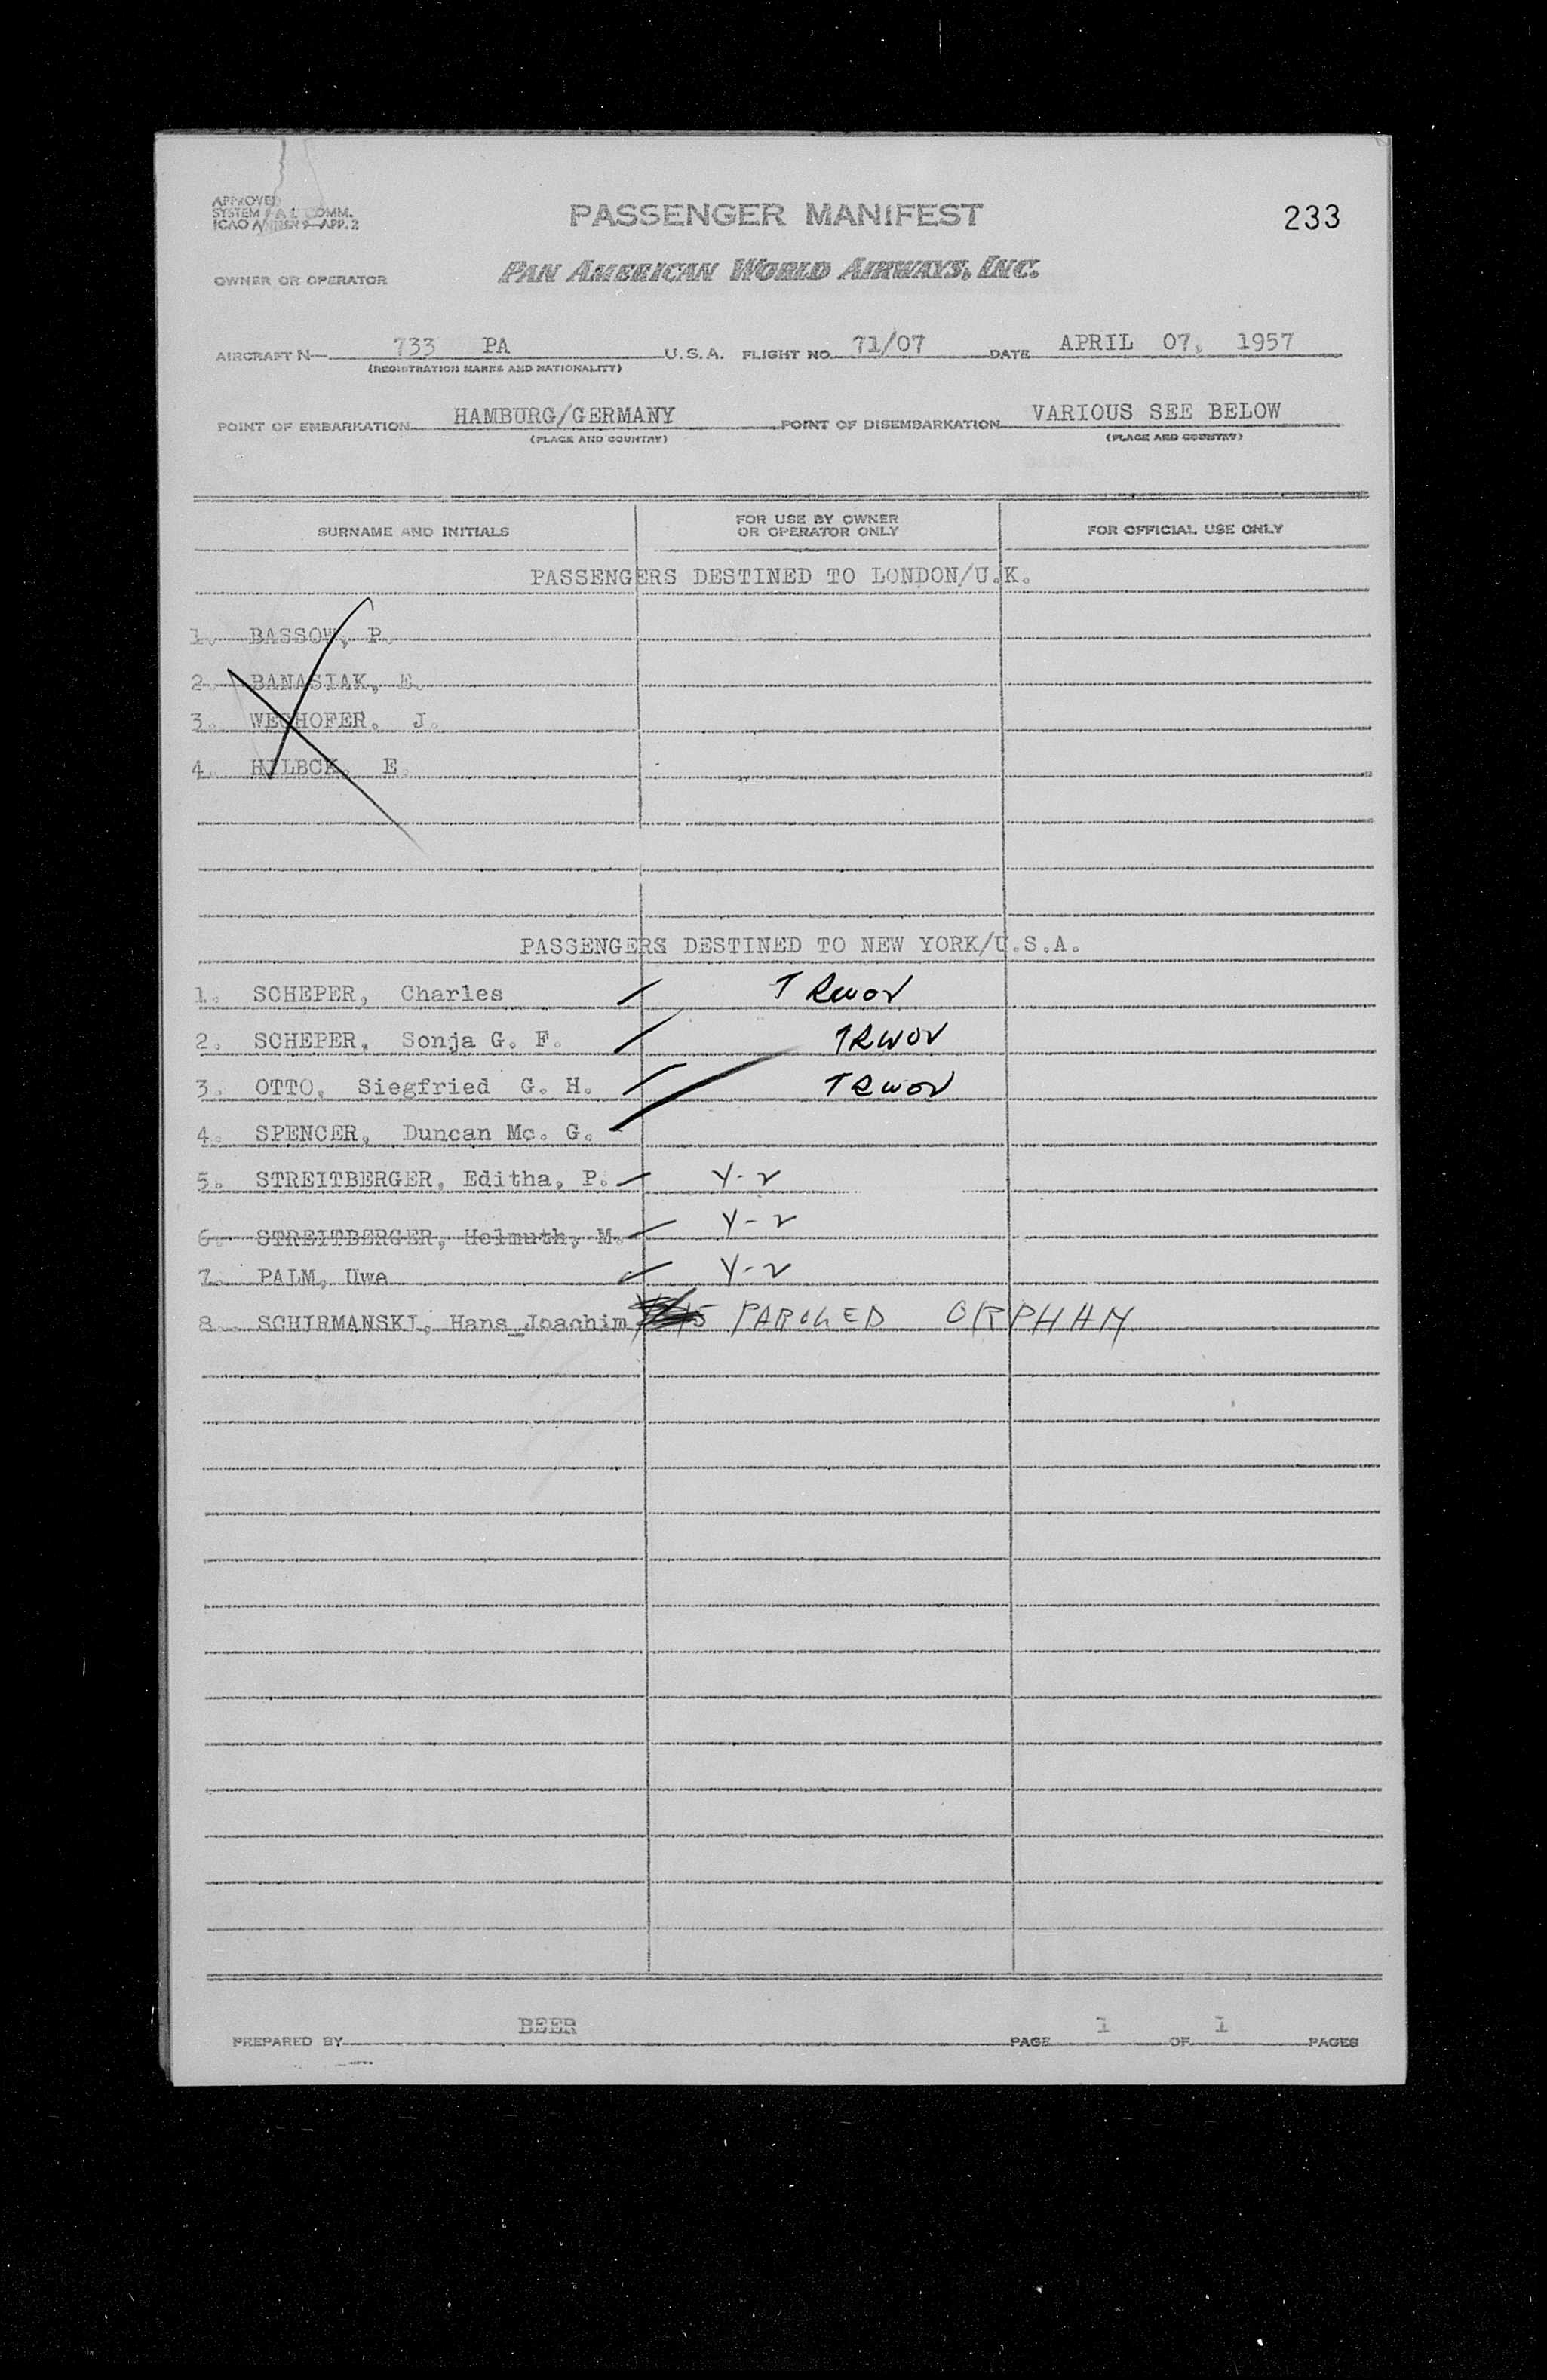 APPROVED
SYSTEM F A L COMM.
ICAO ANNEX 9—APP. 2
PASSENGER MANIFEST
233
OWNER OR OPERATOR
PAN AMERICAN WORLD AIRWAYS, INC.
AIRCRAFT N— 733 PA U.S.A. FLIGHT NO. 71/07 DATE APRIL 07, 1957
(REGISTRATION MARKS AND NATIONALITY)
POINT OF EMBARKATION HAMBURG/GERMANY POINT OF DISEMBARKATION VARIOUS SEE BELOW
(PLACE AND COUNTRY) (PLACE AND COUNTRY)
SURNAME AND INITIALS FOR USE BY OWNER OR OPERATOR ONLY FOR OFFICIAL USE ONLY
PASSENGERS DESTINED TO LONDON/U.K.
1. BASSOW, P.
2. BANASIAK, E.
3. WEGHOFER, J.
4. E.
PASSENGERS DESTINED TO NEW YORK/U.S.A.
1. SCHEPER, Charles TRWOV
2. SCHEPER, Sonja G. F. TRWOV
3. OTTO, Siegfried G. H. TRWOV
4. SPENCER, Duncan Mc. G.
5. STREITBERGER, Editha, P. Y-2
6. STREITBERGER, Helmuth, M. Y-2
7. PALM, Uwe Y-2
8. SCHIRMANSKI, Hans_Joachim PAROLED ORPHAN
PREPARED BY BEER PAGE 1 OF 1 PAGES